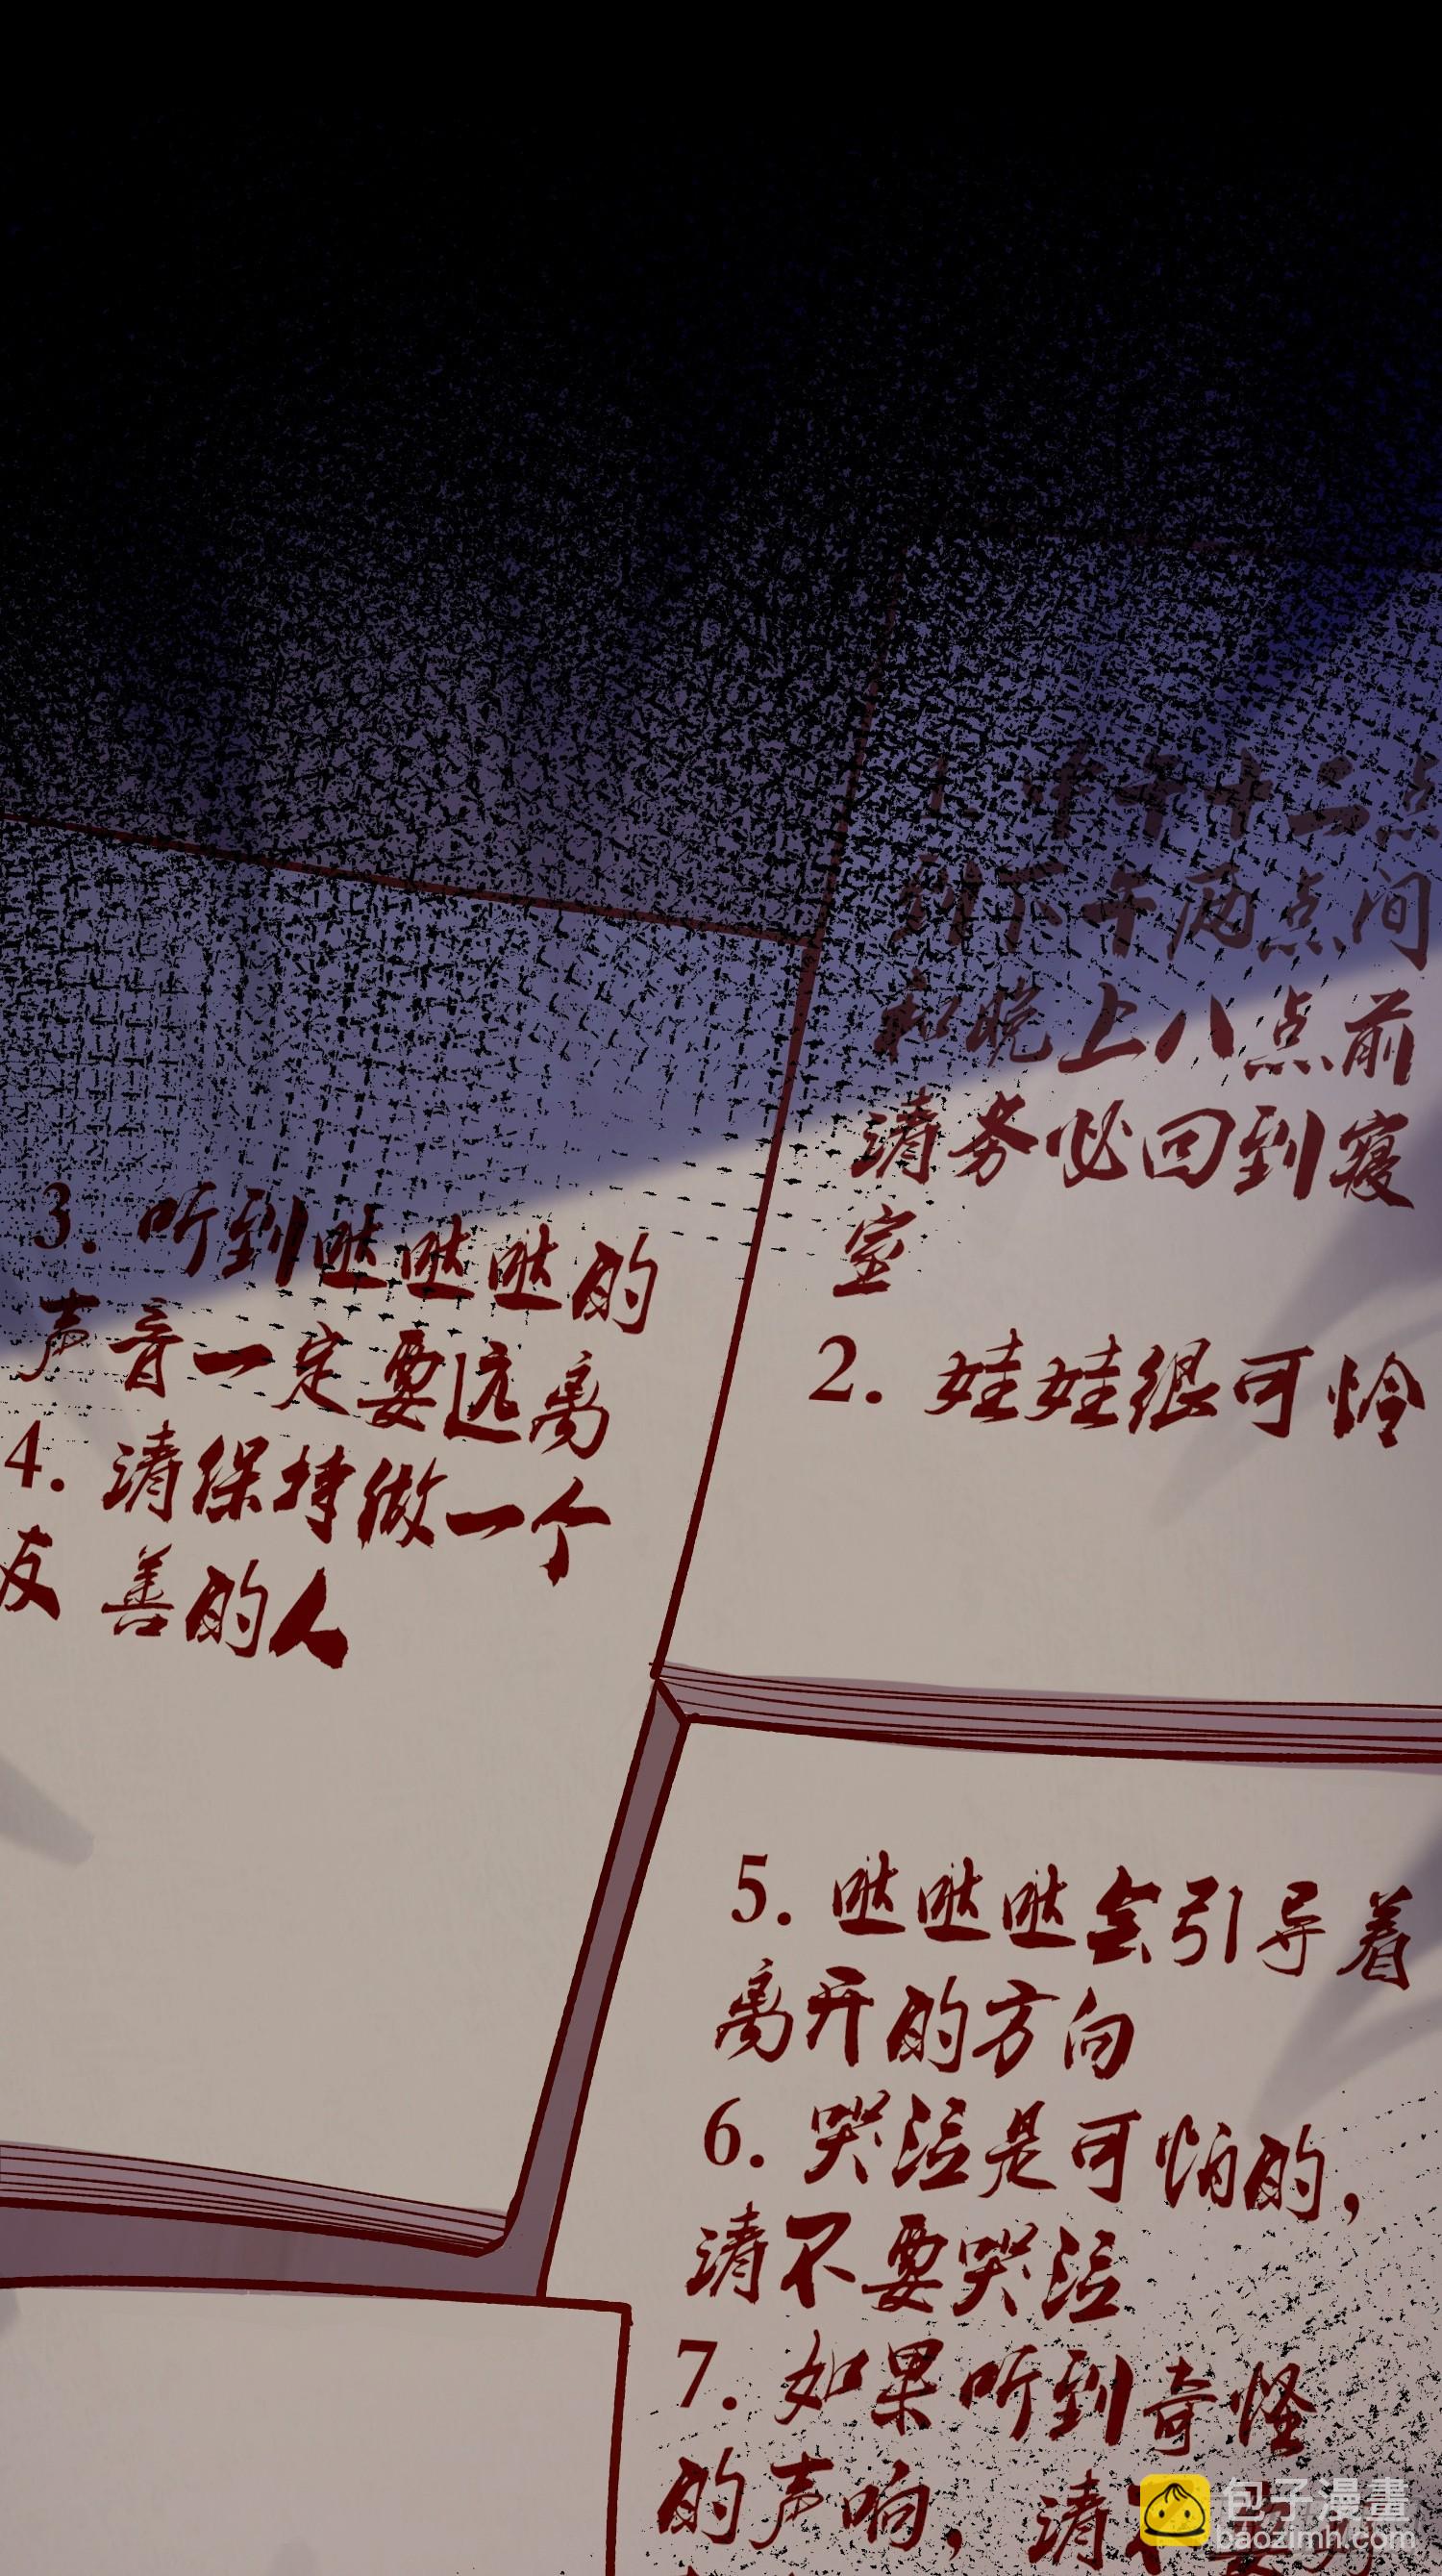 1. 中午十二点
到下午两点间
和晚上八点前
请务必回到寝
室
2. 娃娃很可怜
3. 听到哒哒哒的
声音一定要远离
4. 请保持做一个
友善的人
5. 哒哒哒会引导着
离开的方向
6. 哭泣是可怕的，
请不要哭泣
7. 如果听到奇怪
的声响，请不
包子漫畫
baozimh.com